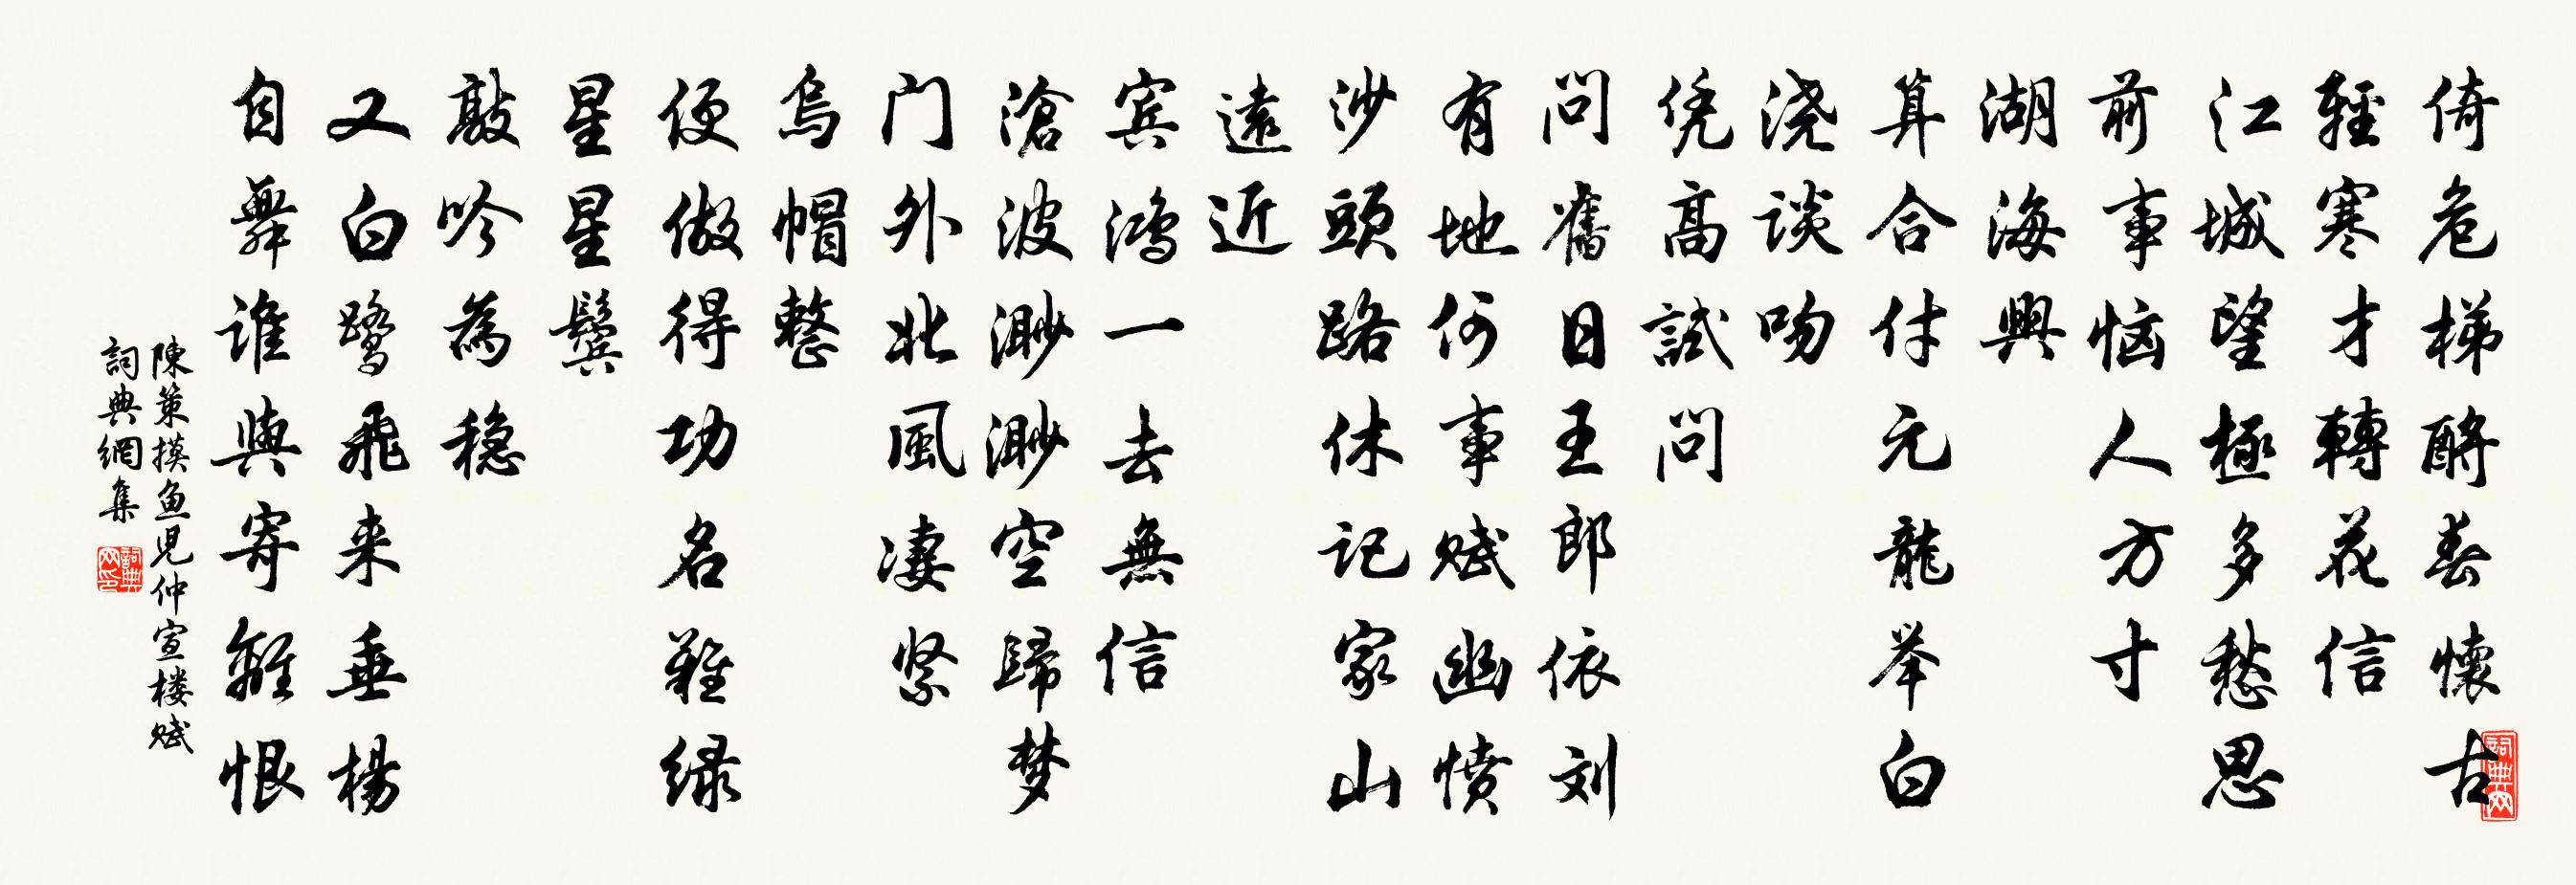 倚危梯酹春懷古
輕寒才轉花信
江城望極多愁思
前事恼人方寸
湖海興
算合付元龍举白
浇談吻
凭高試問
問舊日王郎依刘
有地何事赋幽愤
沙頭路休記家山
遠近
宾鴻一去無信
滄波渺渺空歸梦
门外北風凄紧
烏帽整
便做得功名難绿
星星鬓
敲吟為稳
又白鹭飛来垂楊
自舞谁與寄離恨
陳策摸鱼児仲宣楼赋
詞典網集
詞典网
詞典网印